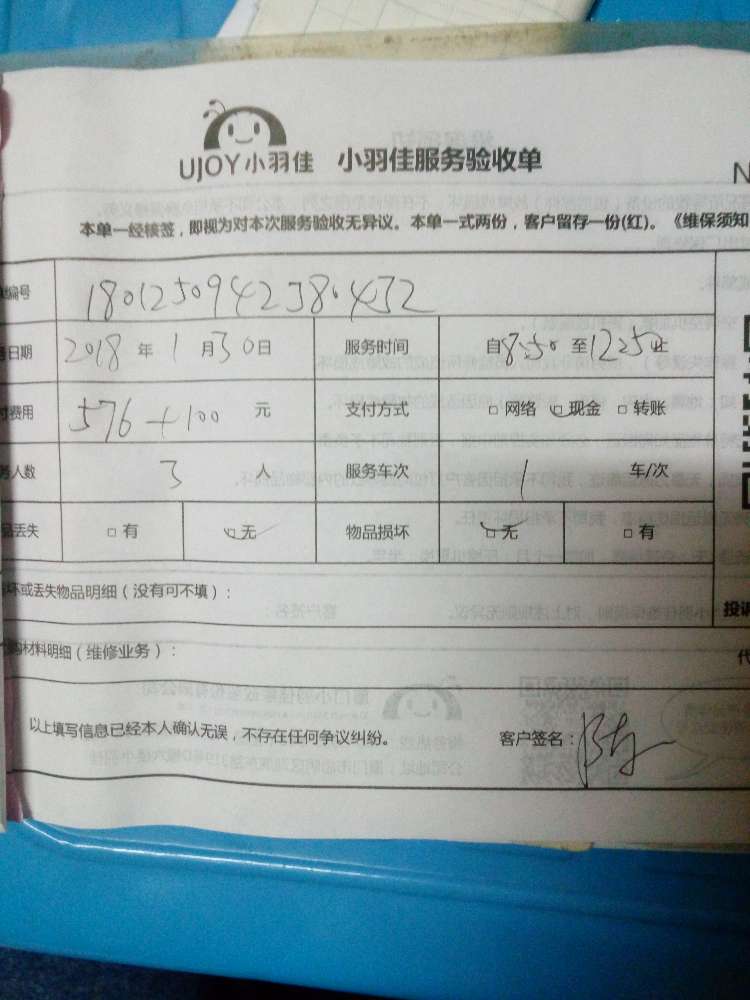 UJOY小羽佳 小羽佳服务验收单
N
本单一经核签，即视为对本次服务验收无异议。本单一式两份，客户留存一份(红)。《维保须知
编号 1801250942380432
日期 2018 年 1 月 30 日 服务时间 自 8:50 至 12:25 止
费用 576+100 元 支付方式 □ 网络 □ 现金 □ 转账
人数 3 人 服务车次 1 车/次
丢失 □ 有 □ 无 物品损坏 □ 无 □ 有
坏或丢失物品明细（没有可不填）：
投诉
材料明细（维修业务）：
代
以上填写信息已经本人确认无误，不存在任何争议纠纷。 客户签名：